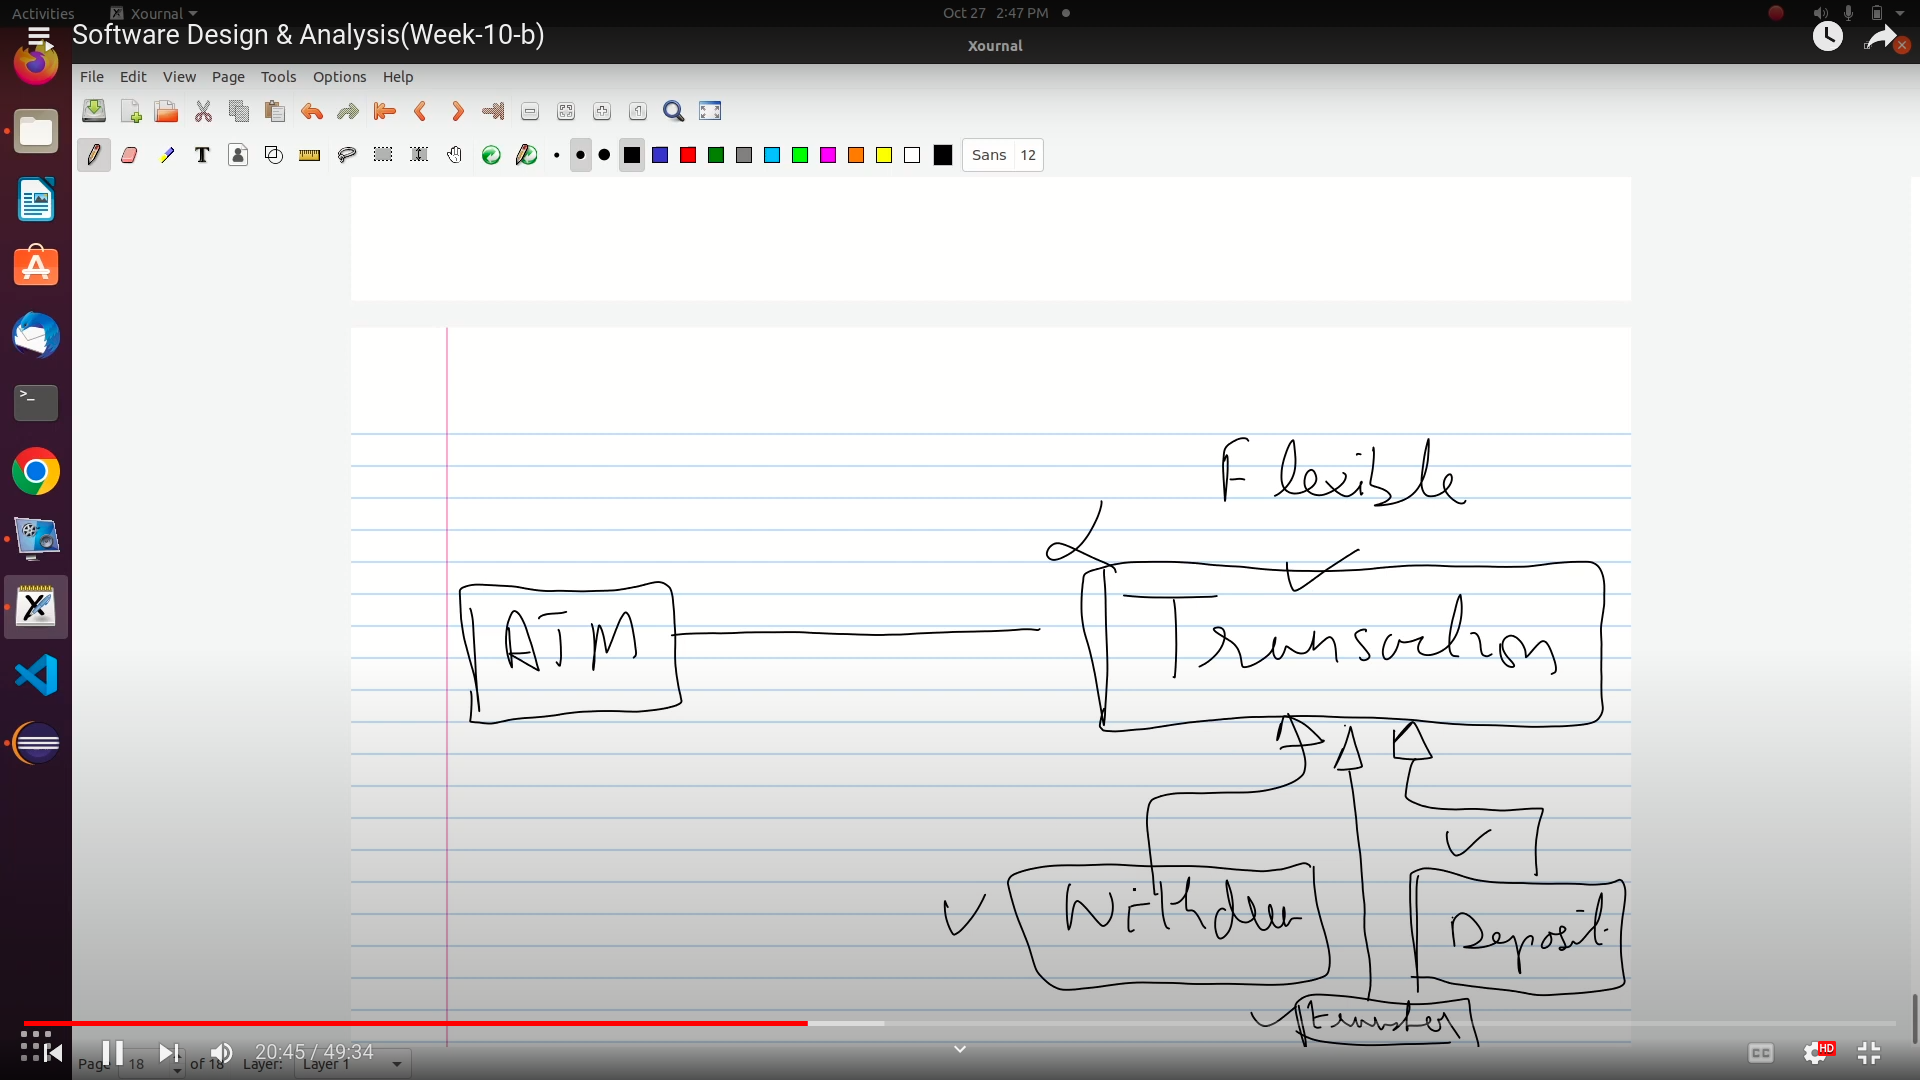 Activities Xournal Oct 27 2:47 PM
Software Design & Analysis(Week-10-b)
Xournal
File Edit View Page Tools Options Help
T Sans 12
Flexible
ATM Transaction
Withdraw Deposit
transfer
20:45 / 49:34 CC HD
Page 18 of 18 Layer: Layer 1